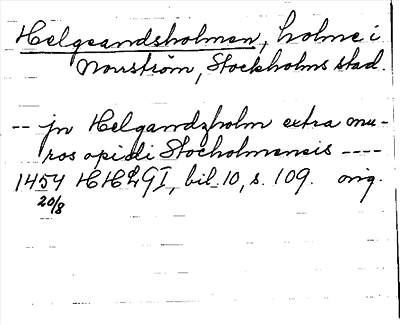 Helgeandsholmen, holme i
Norrström, Stockholms stad.
-- jn Helgandzholm extra mu-
ros opidi Stocholmensis ----
1454 HHLGI, bil. 10, s. 109. orig.
20/8